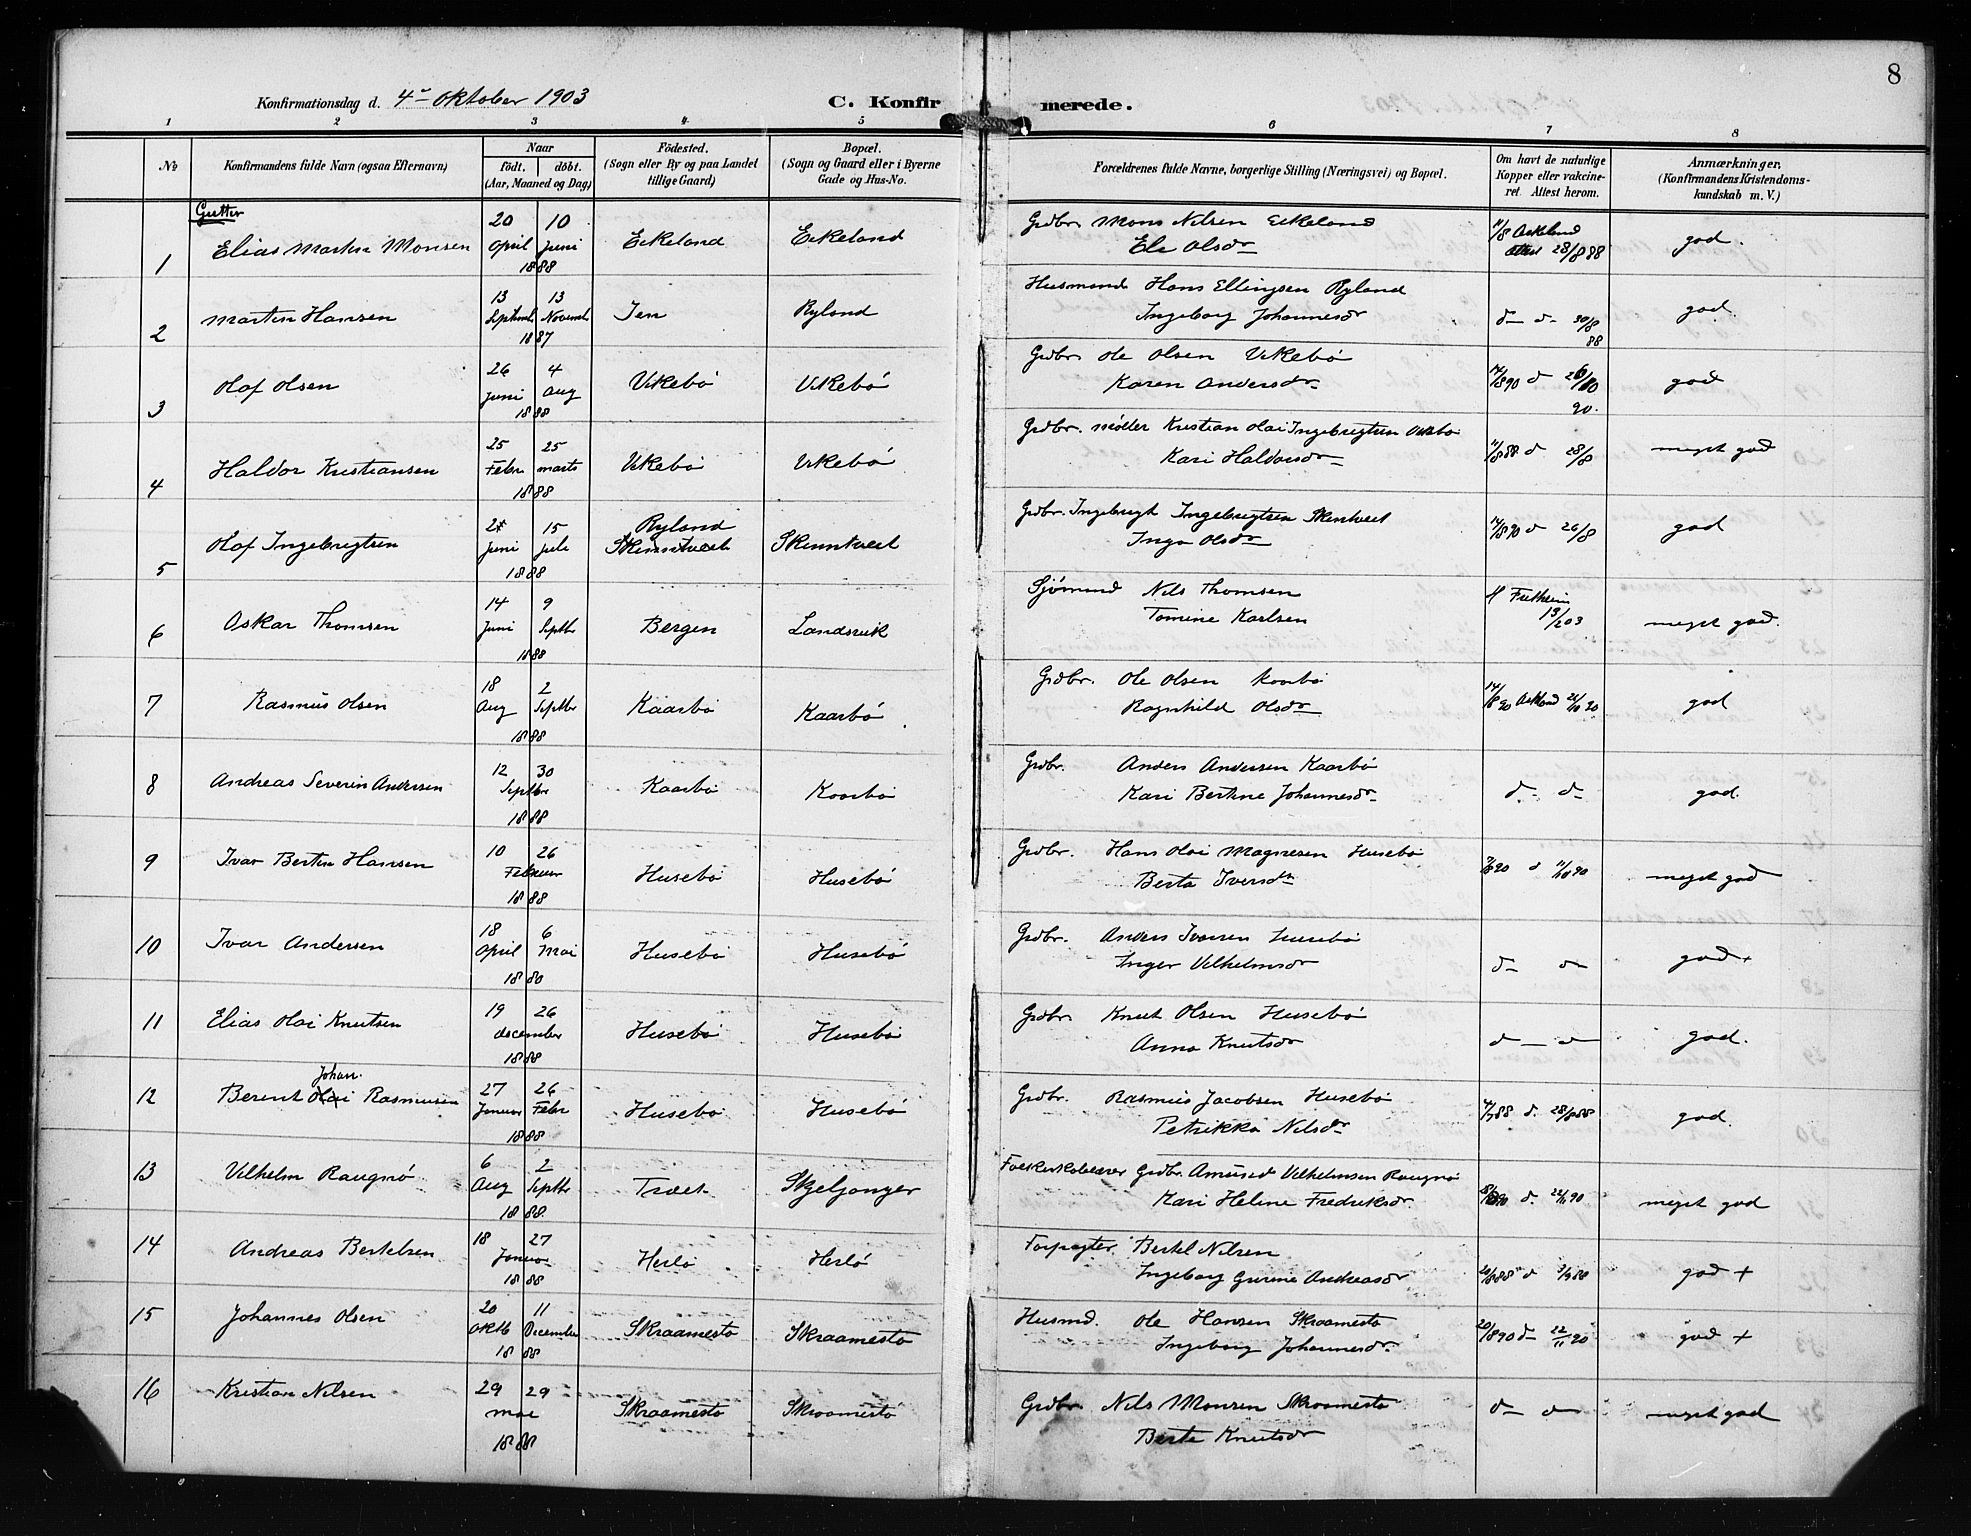 8
Konfirmationsdag d. 4de Oktober 1903
C. Konfirmerede.
1 2 3 4 5 6 7 8
No
Konfirmandens fulde Navn (ogsaa Efternavn)
Naar
født. døbt.
(Aar, Maaned og Dag)
Fødested.
(Sogn eller By og paa Landet
tillige Gaard)
Bopæl.
(Sogn og Gaard eller i Byerne
Gade og Hus-No.
Forældrenes fulde Navne, borgerlige Stilling (Næringsvei) og Bopæl.
Om havt de naturlige
Kopper eller vakcine-
ret. Attest herom.
Anmærkninger.
(Konfirmandens Kristendoms-
kundskab m. V.)
Gutter
1 Elias Martin Monsen 20 April 10 Juni 1888 Eikeland Eikeland Grdbr. Mons Nilsen Eikeland
Ele Olsdr 11/8 Askeland Attest 28/8 88 god.
2 Martin Hansen 13 Septemb 13 Novemb 1887 Ryland Husmand Hans Ellingsen Ryland
Ingeborg Johannesdr d- d- 30/8 88 god.
3 Olaf Olsen 26 Juni 4 Aug 1888 Vikebø Vikebø Grdbr. Ole Olsen Vikebø
Karen Andersdr 90. god
4 Haldor Kristiansen 25 Febr 25 Marts 1888 Vikebø Vikebø Grdbr. Møller Kristian Olai Ingebrigtsen Vikebø
Kari Haldorsdr 11/8 88 d 28/8 meget god
5 Olaf Ingebrigtsen Juni 15 Juli 1888 Ryland Skinntveit Skinntveit Grdbr. Ingebrigt Ingebrigtsen Skintveit
Inga Olsdr 14/8 90 d 26/8 god
6 Oskar Thomsen 14 Juni 9 Septbr 1888 Bergen Landsvik Sjømand Nils Thomsen
Tomine Karlsen Fretheim 13/2 03 meget god.
7 Rasmus Olsen 18 Aug 2 Septbr 1888 Kaarbø Kaarbø Grdbr. Ole Olsen Kaarbø
Ragnhild Olsdr 14/8 90 Askland 21/10 90 god
8 Andreas Severin Andersen 12 30 Septbr 1888 Kaarbø Kaarbø Grdbr. Anders Andersen Kaarbø
Kari Bertine Johannesdr d- d- god.
9 Ivar Bertin Hansen 10 26 Februar 1888 Husebø Husebø Grdbr. Hans Olai Magnesen Husebø
Berta Iversdr d 11/10 90 meget god
10 Ivar Andersen 18 April 6 Mai 1880 Husebø Husebø Grdbr. Anders Iversen Husebø
Inger Vilhelmsdr d- d- god +
11 Elias Olai Knutsen 19 26 december 1888 Husebø Husebø Grdbr. Knut Olsen Husebø
Anna Knutsdr d - d- god.
12 Berent Olai Johan. Rasmusen 27 Januar 26 Febr 1888 Husebø Husebø Grdbr. Rasmus Jacobsen Husebø
Petrikka Nilsdr 4/7 88 d. 28/8 88 god.
13 Vilhelm Raugnø 6 Aug 2 Septbr 1888. Træt Skjeljanger Folkeskolelærer Grdbr. Amund Vilhelmsen Raugnø
Kari Heline Fredriksdr d. 22/11 90 meget god
14 Andreas Bertelsen 18 27 Januar 1888 Herlø Herlø Forpagter Bertel Nilsen
Ingeborg Gurine Andreasdr 20/8 88 d 3/9 88 god +
15 Johannes Olsen 20 Oktb 11 December 1888 Skraamestø Skraamestø Husmd. Ole Hansen Skraamestø
Ingeborg Johannesdr 20/8 90 d- 22/11 90 god +
16 Kristian Nilsen 29 29 mai 1888 Skraamestø Skraamestø Grdbr. Nils Monsen Skraamestø
Berte Knutsdr d- d- meget god